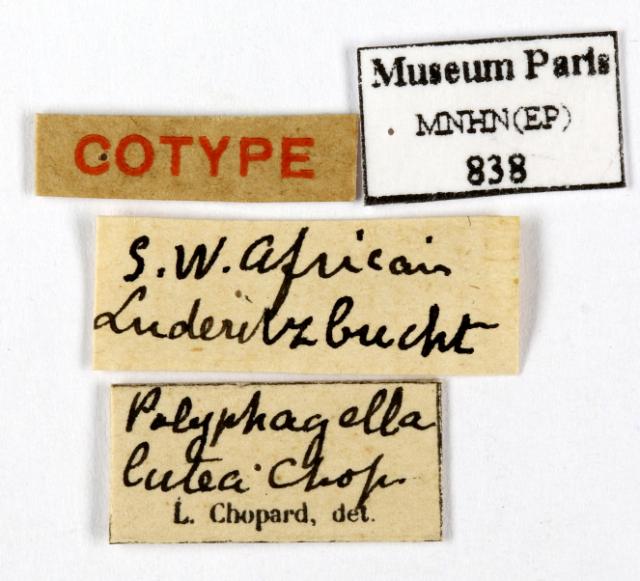 Museum Paris
MNHN(EP)
838
COTYPE
S.W. Africain
Luderitzbucht
Polyphagella
lutea Chop.
L. Chopard, det.